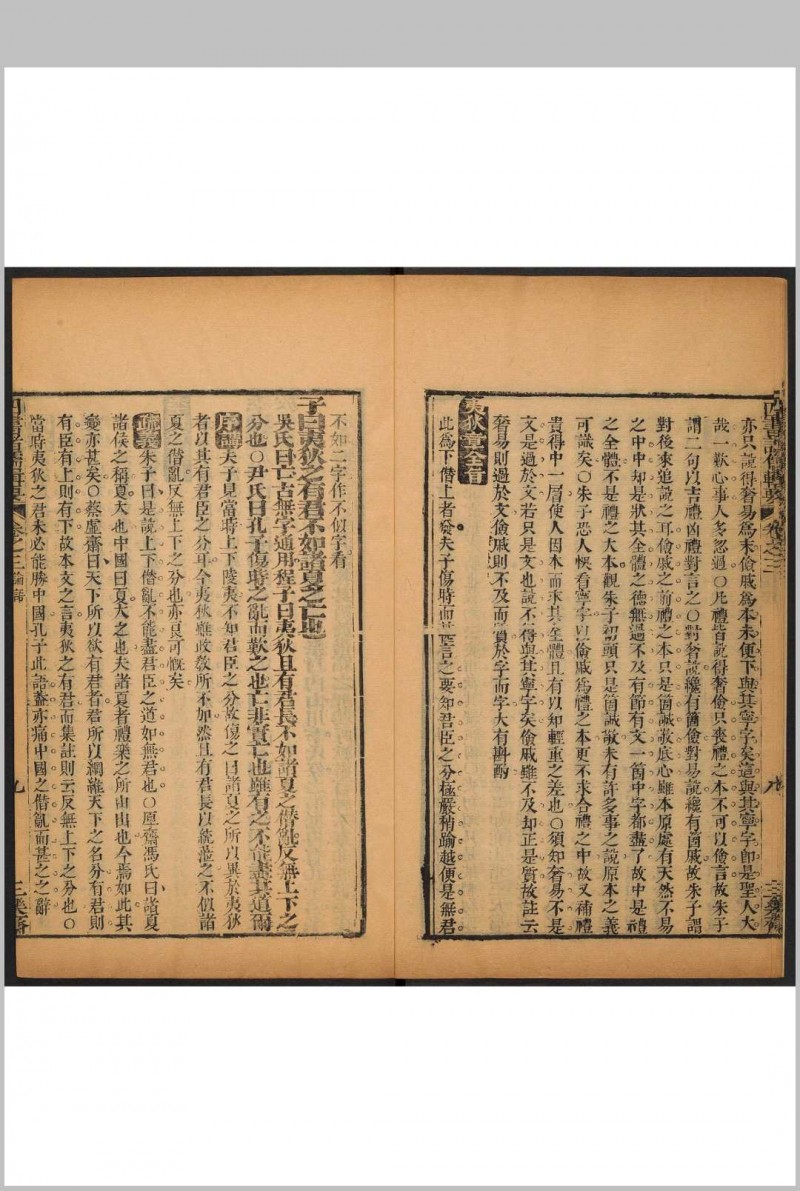 亦只說得奢易為末儉戚為本未便下與其寧字矣這與其寧字即是聖人大
哉一歎心事人多忽過○凡禮皆說得奢儉只喪禮之本不可以儉言故朱子
謂二句以吉禮凶禮對言之○對奢說纔有箇儉對易說纔有箇戚故朱子謂
對後來追說之耳儉戚之前禮之本只是箇誠敬底心雖本原處有天然不易
之中中却是狀其全體之德無過不及有節有文一箇中字都盡了故中是禮
之全體不是禮之大本觀朱子初頭只是箇誠敬未有許多事之說原本之義
可識矣○朱子恐人悞看寧字以儉戚為禮之本更不求合禮之中故又補禮
貴得中一層使人因本而求其全體且有以知輕重之差也○須知奢易不是
文是過於文若只是文也說不得與其寧字矣儉戚雖不及却正是質故註云
奢易則過於文儉戚則不及而質於字而字大有斟酌
夷狄章全旨
此為下僭上者發夫子傷時而甚言之要知君臣之分極嚴稍踰越便是無君
卷之三
八
三樂齋
不如二字作不似字看
子曰夷狄之有君不如諸夏之亡也
吳氏曰亡古無字通用程子曰夷狄且有君長不如諸夏之僭亂反無上下之
分也○尹氏曰孔子傷時之亂而歎之也亡非實亡也雖有之不能盡其道爾
序講夫子見當時上下陵夷不知君臣之分故傷之曰諸夏之所以異於夷狄
者以其有君臣之分耳今夷狄雖政敎所不如然且有君長以統蒞之不似諸
夏之僭亂反無上下之分也亦良可慨矣
疏義朱子曰是說上下僭亂不能盡君臣之道如無君也○厚齋馮氏曰諸夏
諸侯之稱夏大也中國曰夏大之也夫諸夏者禮樂之所由出也今焉如此其
變亦甚矣○蔡虛齋曰天下所以欲有君者君所以綱維天下之名分有君則
有臣有上則有下故本文之言夷狄之有君而集註則云反無上下之分也○
當時夷狄之君未必能勝中國孔子此語蓋亦痛中國之僭亂而甚之之辭
卷之三
論語
九
三樂齋